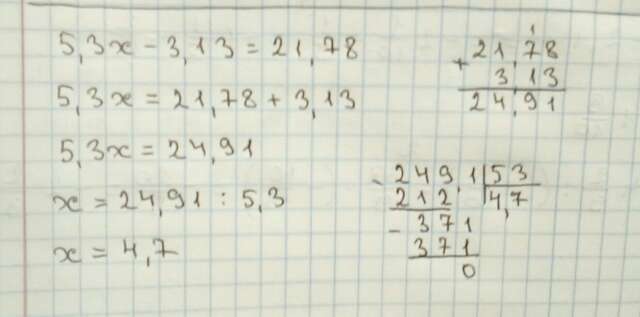 5,3x - 3,13 = 21,78
5,3x = 21,78 + 3,13
5,3x = 24,91
x = 24,91 : 5,3
x = 4,7
1
+ 21,78
3 13
24,91
- 249,1 | 53
212 4,7
- 371
371
0